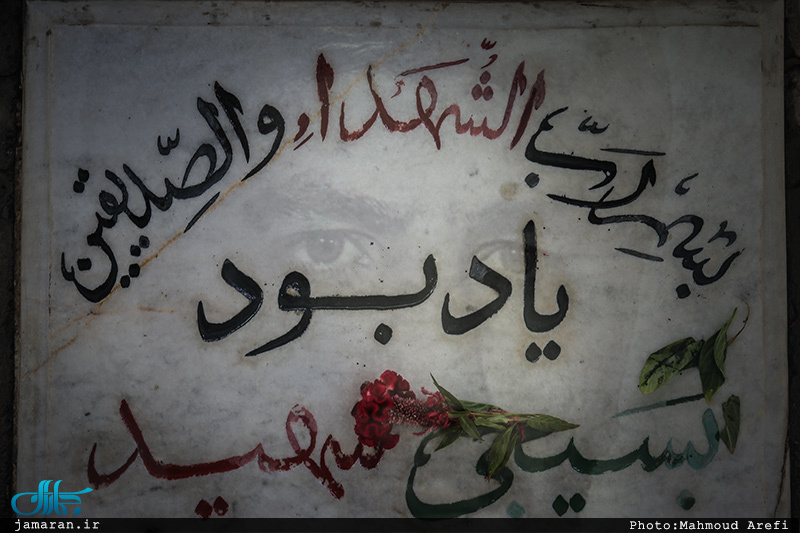 بِسْمِ رَبِّ الشُّهَداءِ والصِّدیقین
یادبود
بسیجی شهید
جماران
jamaran.ir
Photo:Mahmoud Arefi